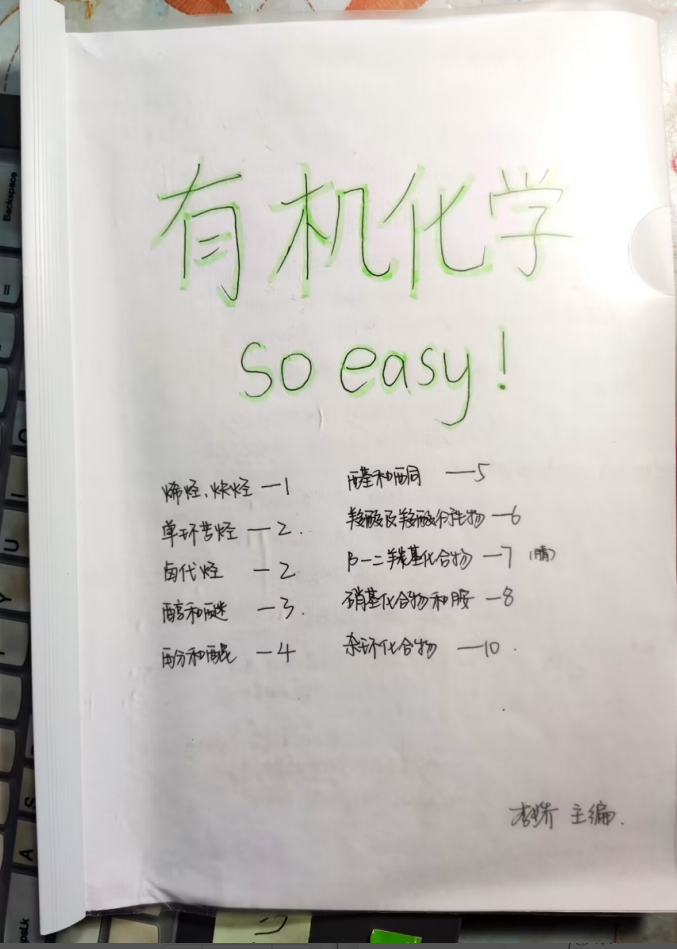 有机化学
so easy!
烯烃、炔烃 —1
单环芳烃 —2.
卤代烃 —2
醇和醚 —3.
酚和醌 —4
醛和酮 —5
羧酸及羧酸衍生物 —6
β-二羰基化合物 —7 (腈)
硝基化合物和胺 —8
杂环化合物 —10.
主编.
Backspace